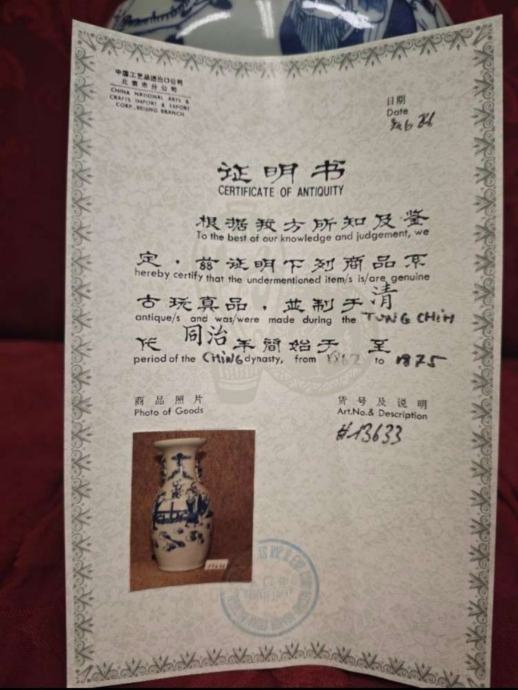 中国工艺品进出口公司
北京市分公司
CHINA NATIONAL ARTS &
CRAFTS IMPORT & EXPORT
CORP., BEIJING BRANCH
日期
Date
证明书
CERTIFICATE OF ANTIQUITY
根据我方所知及鉴
To the best of our knowledge and judgement, we
定，兹证明下列商品系
hereby certify that the undermentioned item/s is/are genuine
古玩真品，並制于清
antique/s and was/were made during the TUNG CHIH
代 同治年间始于 至
period of the CHING dynasty, from 1862 to 1875
商品照片
Photo of Goods
货号及说明
Art.No.& Description
#13633